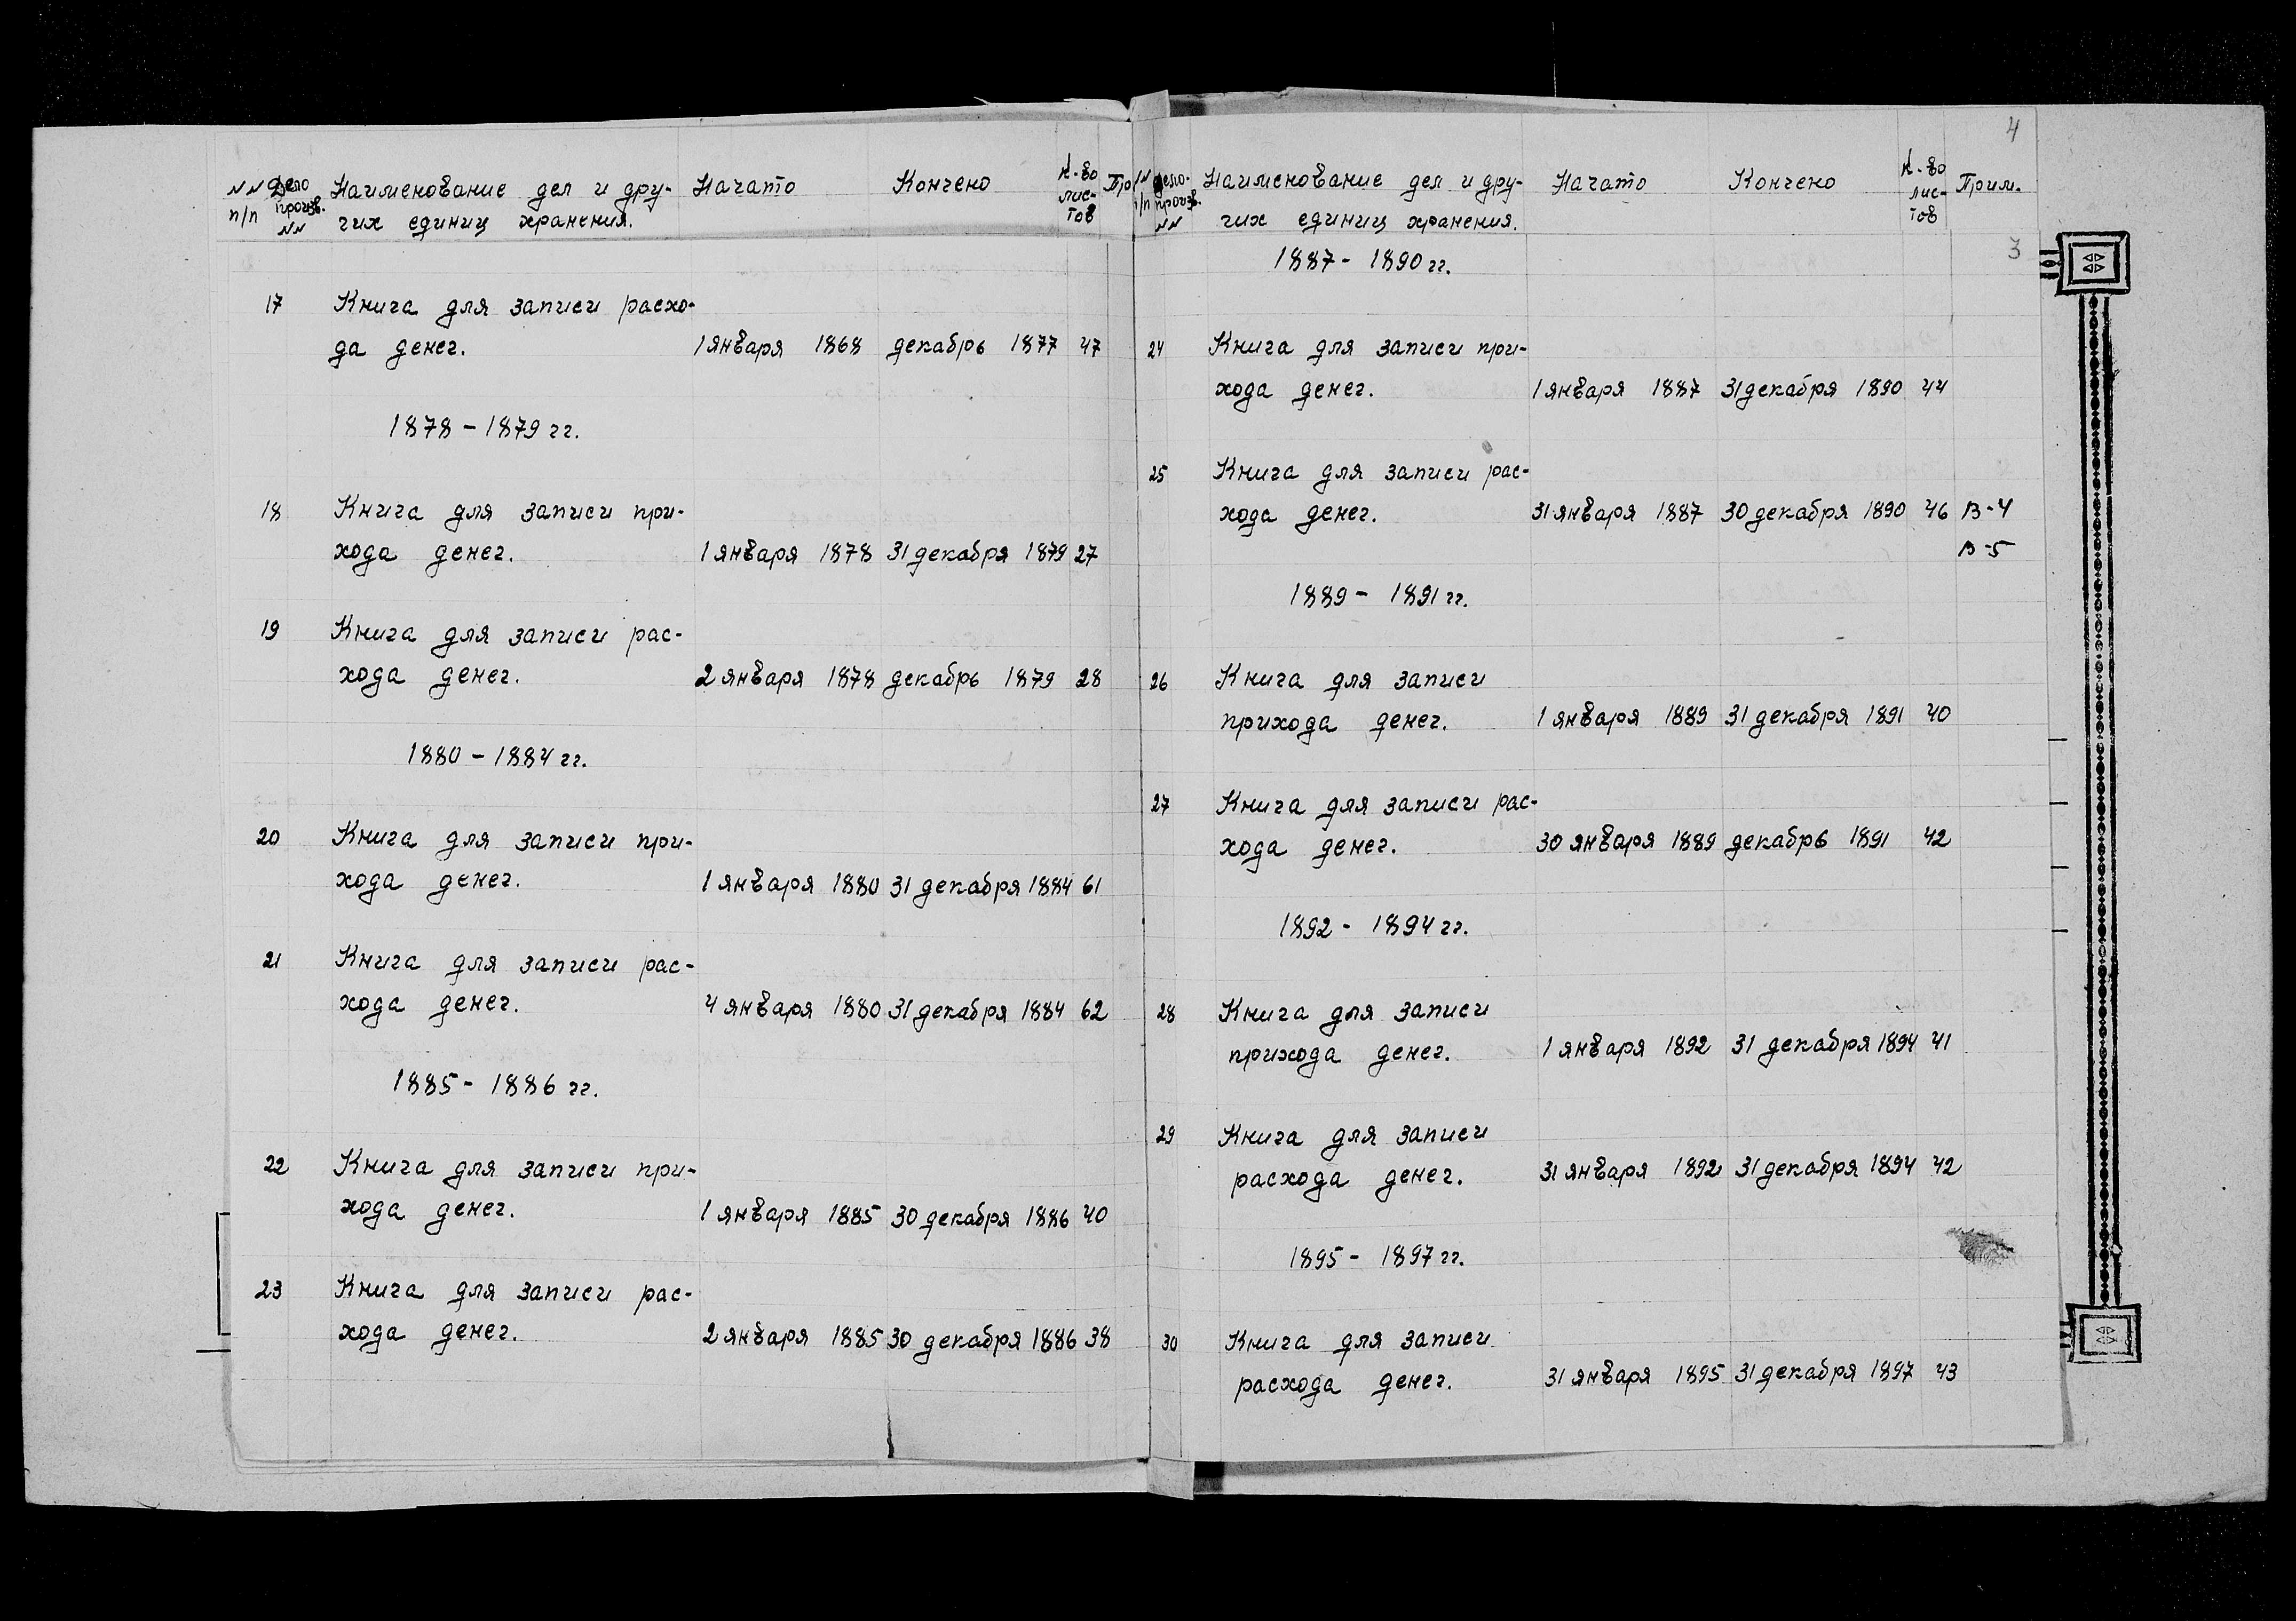 NN Дело Наименование дел и дру- Начато Кончено К-во
п/п произв. гих единиц хранения. лис-
NN тов
17 Книга для записи расхо-
да денег. 1 января 1868 декабрь 1877 47
1878 - 1879 гг.
18 Книга для записи при-
хода денег. 1 января 1878 31 декабря 1879 27
19 Книга для записи рас-
хода денег. 2 января 1878 декабрь 1879 28
1880 - 1884 гг.
20 Книга для записи при-
хода денег. 1 января 1880 31 декабря 1884 61
21 Книга для записи рас-
хода денег. 4 января 1880 31 декабря 1884 62
1885 - 1886 гг.
22 Книга для записи при-
хода денег. 1 января 1885 30 декабря 1886 40
23 Книга для записи рас-
хода денег. 2 января 1885 30 декабря 1886 38
4
дело- Наименование дел и дру- Начато Кончено К-во Прим.
п/п произв. гих единиц хранения. лис-
NN тов
3
1887 - 1890 гг.
24 Книга для записи при-
хода денег. 1 января 1887 31 декабря 1890 44
25 Книга для записи рас-
хода денег. 31 января 1887 30 декабря 1890 46 В-4
В-5
1889 - 1891 гг.
26 Книга для записи
прихода денег. 1 января 1889 31 декабря 1891 40
27 Книга для записи рас-
хода денег. 30 января 1889 декабрь 1891 42
1892 - 1894 гг.
28 Книга для записи
прихода денег. 1 января 1892 31 декабря 1894 41
29 Книга для записи
расхода денег. 31 января 1892 31 декабря 1894 42
1895 - 1897 гг.
30 Книга для записи
расхода денег. 31 января 1895 31 декабря 1897 43